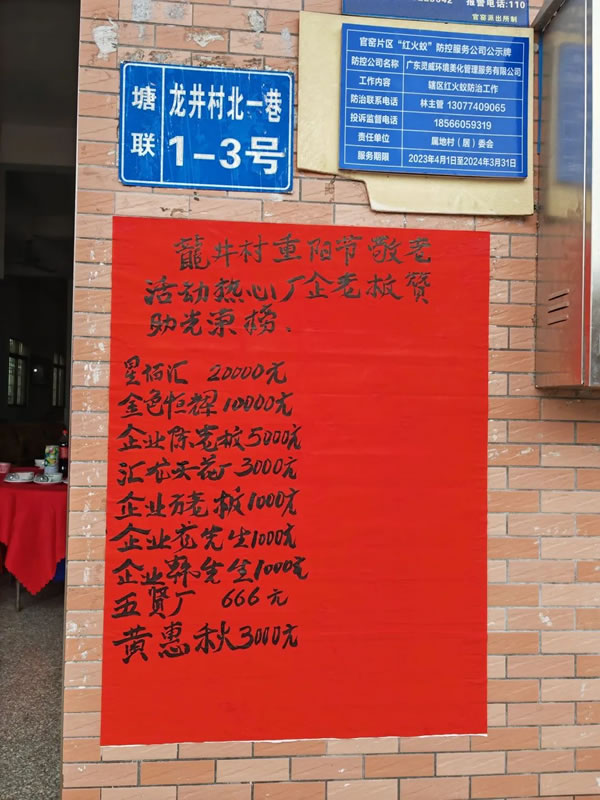 报警电话:110
官窑派出所制
官窑片区“红火蚁”防控服务公司公示牌
防控公司名称 广东灵威环境美化管理服务有限公司
工作内容 辖区红火蚁防治工作
防治联系电话 林主管 13077409065
投诉监督电话 18566059319
责任单位 属地村（居）委会
服务期限 2023年4月1日至2024年3月31日
塘联
龙井村北一巷
1-3号
龍井村重阳节敬老
活动热心厂企老板赞
助光荣榜.
星佰汇 20000元
金色恒辉10000元
企业陈老板5000元
汇龙天花厂3000元
企业方老板1000元
企业 先生1000元
企业韩先生1000元
五贤厂 666元
黄惠秋3000元